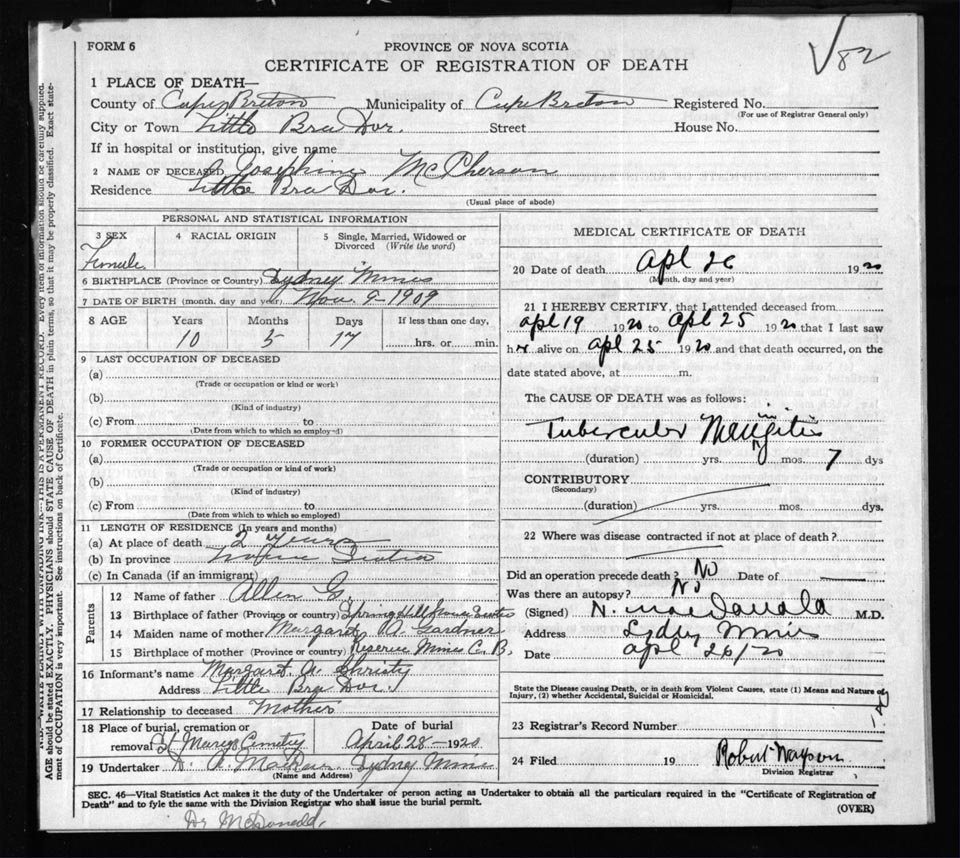 FORM 6
PROVINCE OF NOVA SCOTIA
√82
CERTIFICATE OF REGISTRATION OF DEATH
1 PLACE OF DEATH—
County of Cape Breton Municipality of Cape Breton Registered No.
(For use of Registrar General only)
City or Town Little Bra Dor. Street House No.
If in hospital or institution, give name
2 NAME OF DECEASED Josephine McPherson
Residence Little Bra Dor.
(Usual place of abode)
PERSONAL AND STATISTICAL INFORMATION
3 SEX 4 RACIAL ORIGIN 5 Single, Married, Widowed or
Divorced (Write the word)
Female.
6 BIRTHPLACE (Province or Country) Sydney Mines
7 DATE OF BIRTH (month, day and year) Nov. 9-1909
8 AGE Years Months Days If less than one day,
10 5 17 hrs. or min.
9 LAST OCCUPATION OF DECEASED
(a)
(Trade or occupation or kind or work)
(b)
(Kind of industry)
(c) From to
(Date from which to which so employed)
10 FORMER OCCUPATION OF DECEASED
(a)
(Trade or occupation or kind of work)
(b)
(Kind of industry)
(c) From to
(Date from which to which so employed)
11 LENGTH OF RESIDENCE (In years and months)
(a) At place of death 2 years
(b) In province Scotia
(c) In Canada (if an immigrant)
Parents
12 Name of father Allen G.
13 Birthplace of father (Province or country) Spring Hill Nova Scotia
14 Maiden name of mother Margaret A. Gardner
15 Birthplace of mother (Province or country) Reserve Mines C. B.
16 Informant's name Margaret. A. Christy
Address Little Bra Dor.
17 Relationship to deceased Mother
18 Place of burial, cremation or Date of burial
removal St Marys Cemetry April 28-1920
19 Undertaker D. A. Sydney Mines
(Name and Address)
MEDICAL CERTIFICATE OF DEATH
20 Date of death Apl 26 1920
(Month, day and year)
21 I HEREBY CERTIFY, that I attended deceased from
Apl 19 1920 to Apl 25 1920 that I last saw
her alive on Apl 25 1920 and that death occurred, on the
date stated above, at m.
The CAUSE OF DEATH was as follows:
Tubercular Meningitis
(duration) yrs. mos. 7 dys
CONTRIBUTORY
(Secondary)
(duration) yrs. mos. dys.
22 Where was disease contracted if not at place of death?
Did an operation precede death? No Date of
Was there an autopsy? No
(Signed) N. MacDonald M.D.
Address Sydney Mines
Date Apl 26/20
State the Disease causing Death, or in death from Violent Causes, state (1) Means and Nature of
Injury, (2) whether Accidental, Suicidal or Homicidal.
23 Registrar's Record Number
24 Filed 19 Robert
Division Registrar
SEC. 46—Vital Statistics Act makes it the duty of the Undertaker or person acting as Undertaker to obtain all the particulars required in the "Certificate of Registration of
Death" and to fyle the same with the Division Registrar who shall issue the burial permit.
(OVER)
Dr McDonald.
N.B.—WRITE PLAINLY WITH UNFADING INK—THIS IS A PERMANENT RECORD. Every item of information should be carefully supplied.
AGE should be stated EXACTLY. PHYSICIANS should STATE CAUSE OF DEATH in plain terms, so that it may be properly classified. Exact state-
ment of OCCUPATION is very important. See instructions on back of Certificate.